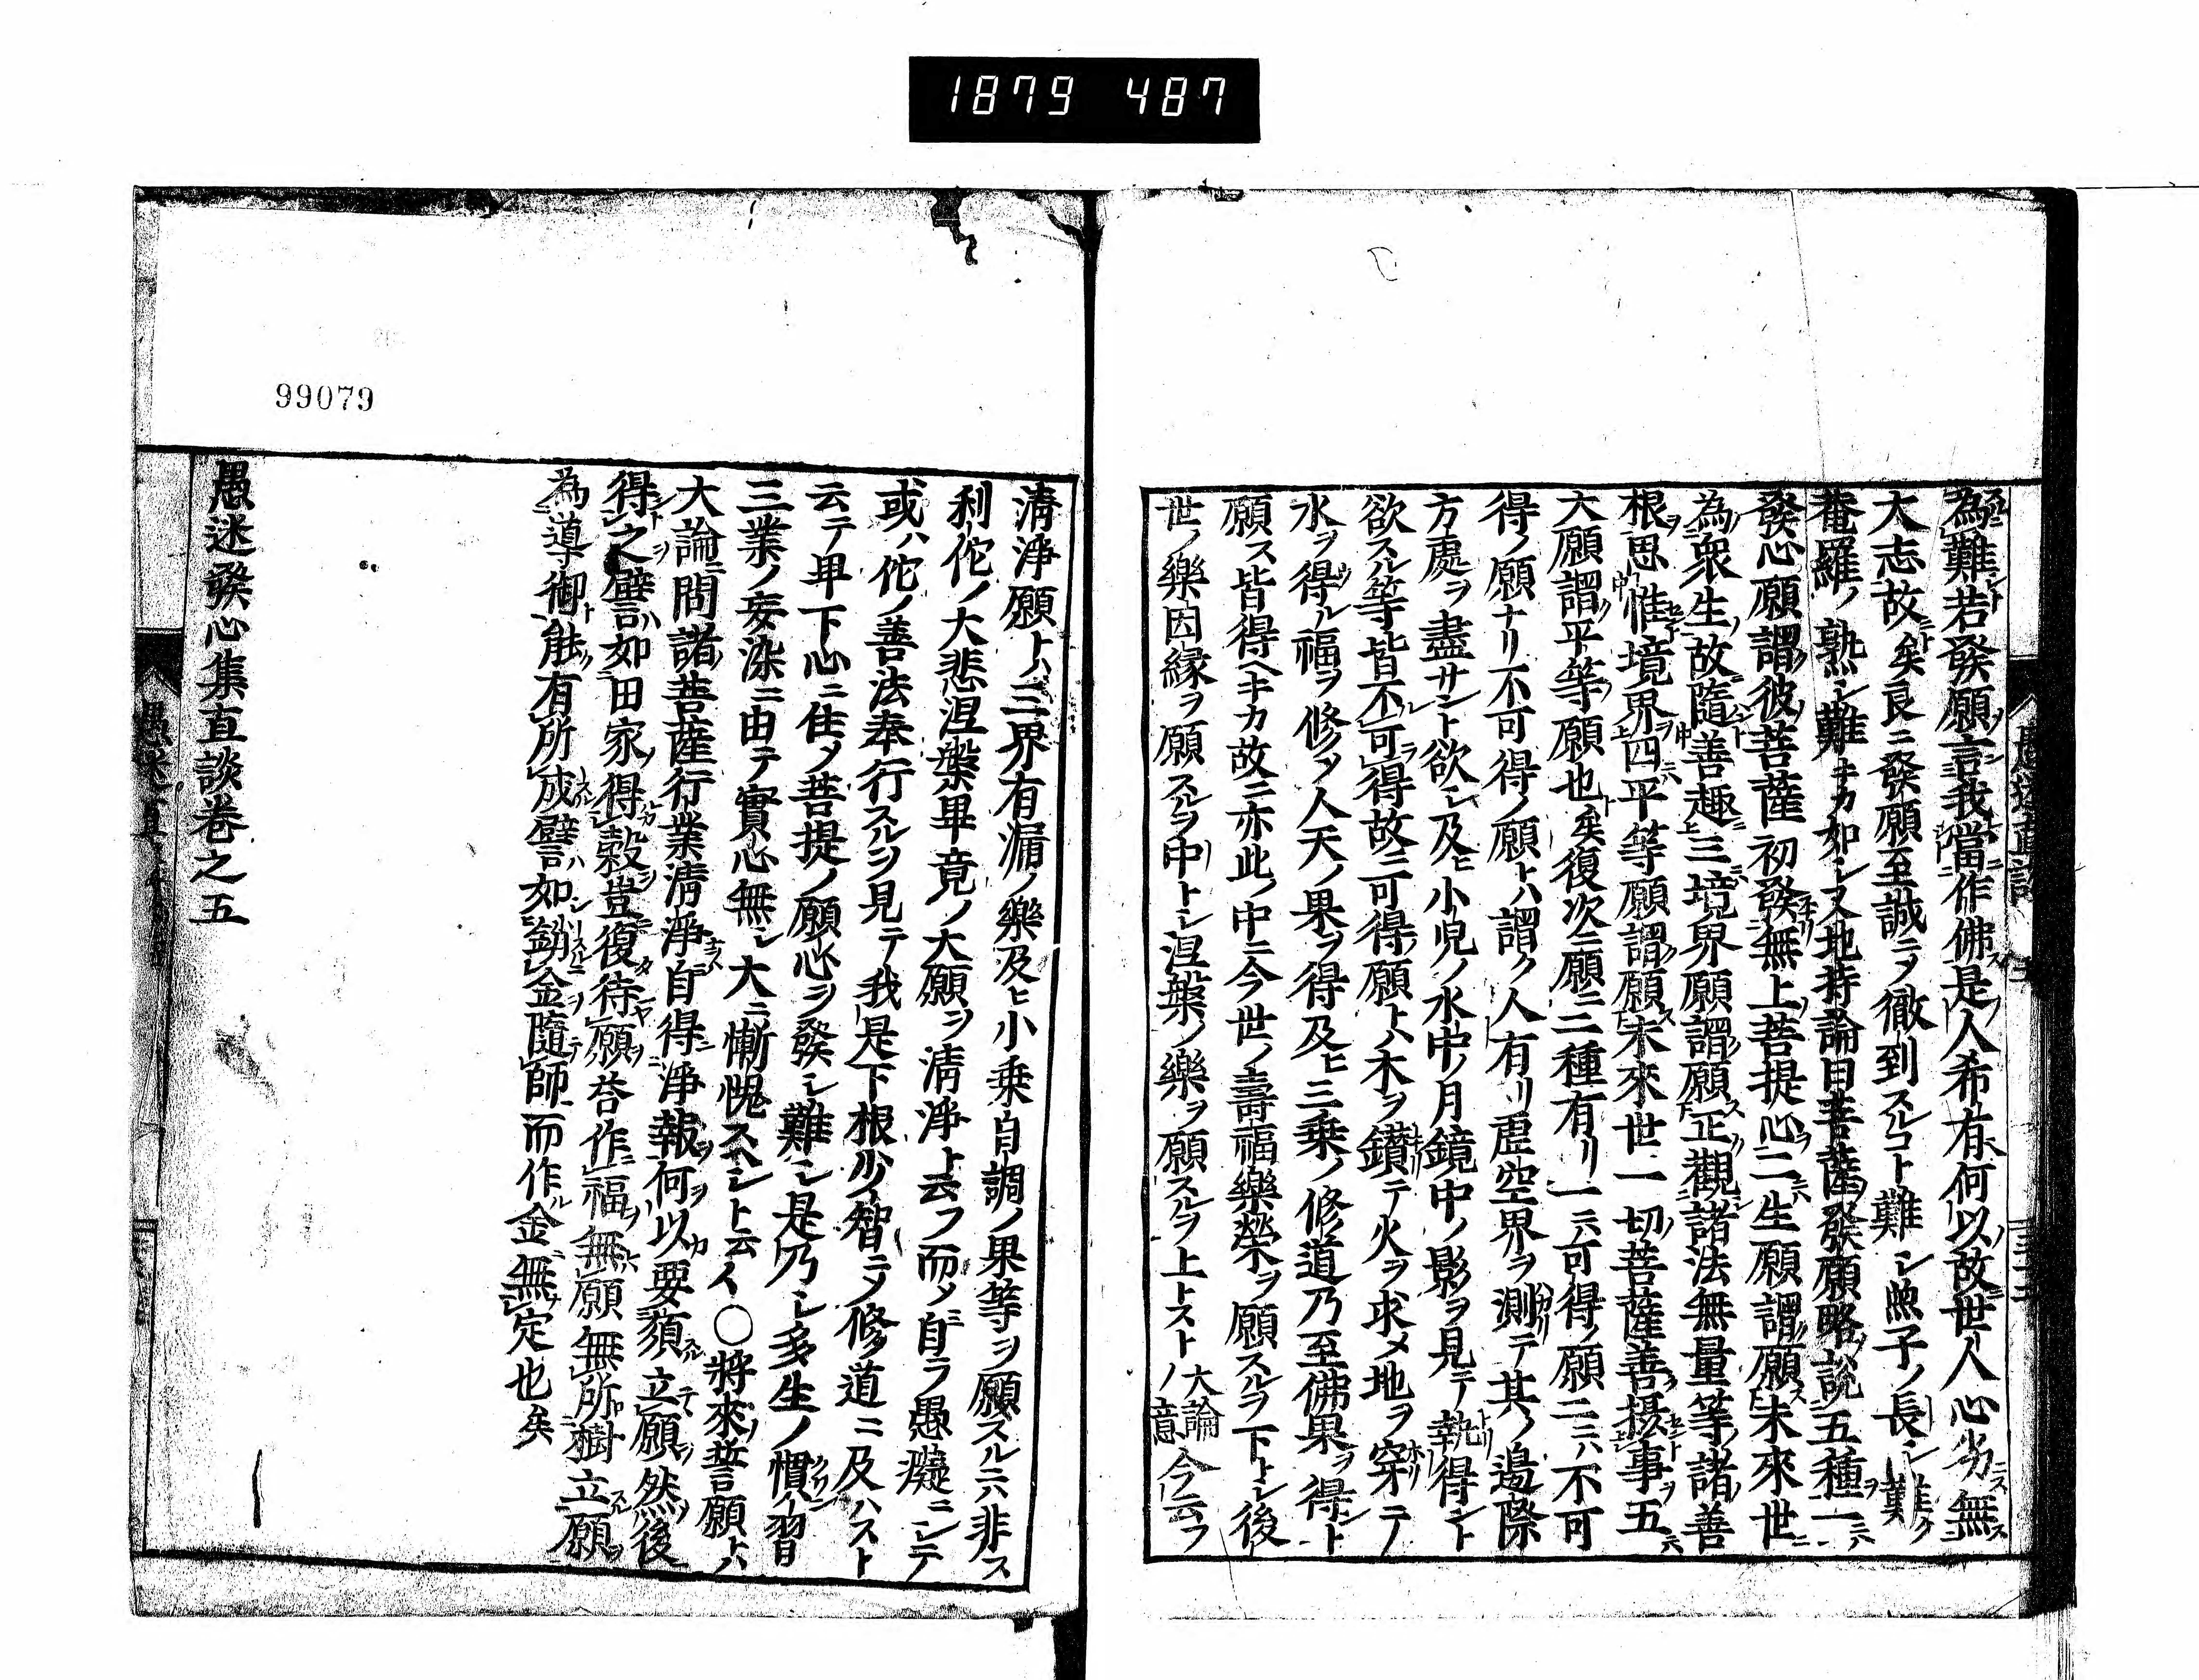 1879 487
為難若發願言我當作佛是人希有何以故世人心劣無
大志故矣良ニ發願至誠ニメ徹到スルコト難シ魚子ノ長シ難ク
菴羅ノ熟シ難キカ如シ又地持論曰菩薩發願略說五種一
發心願謂彼菩薩初發無上菩提心二生願謂願未來世
為衆生故隨善趣三境界願謂願正觀諸法無量等諸善
根思惟境界四平等願謂願未來世一切菩薩善攝事五
大願謂平等願也矣復次ニ願ニ三種有リ一ニハ可得ノ願二ニハ不可
得ノ願ナリ不可得ノ願トハ謂ク人有リ虛空界ヲ測テ其ノ邊際
方處ヲ盡サント欲シ及ヒ小兒ノ水中ノ月鏡中ノ影ヲ見テ執得ント
欲スル等皆不可得故ニ可得ノ願トハ木ヲ鑚テ火ヲ求メ地ヲ穿テ
水ヲ得ル福ヲ修メ人天ノ果ヲ得及ヒ三乘ノ修道乃至佛果ヲ得ント
願ス皆得ヘキカ故ニ亦此ノ中ニ今世ノ壽福樂榮ヲ願スルヲ下トシ後
世ノ樂因緣ヲ願スルヲ中トシ涅槃ノ樂ヲ願スルヲ上トスト大論ノ意今云フ
清淨願トハ三界有漏ノ樂及ヒ小乘自調ノ果等ヲ願スルニハ非ス
利佗ノ大悲涅槃畢竟ノ大願ヲ清淨ト云フ而メ自ラ愚癡ニシテ
或ハ佗ノ善法奉行スルヲ見テ我是下根少智ニメ修道ニ及ハスト
云テ卑下心ニ住メ菩提ノ願心ヲ發シ難シ是乃シ多生ノ慣習
三業ノ妄染ニ由テ實心無シ大ニ慚愧スヘシト云々○將來誓願トハ
大論問諸菩薩行業清淨自得淨報何以要須立願然後
得之譬如田家得穀豈復待願答作福無願無所樹立願
為導御能有所成譬如銷金隨師而作金無定也矣
愚迷發心集直談卷之五
99079